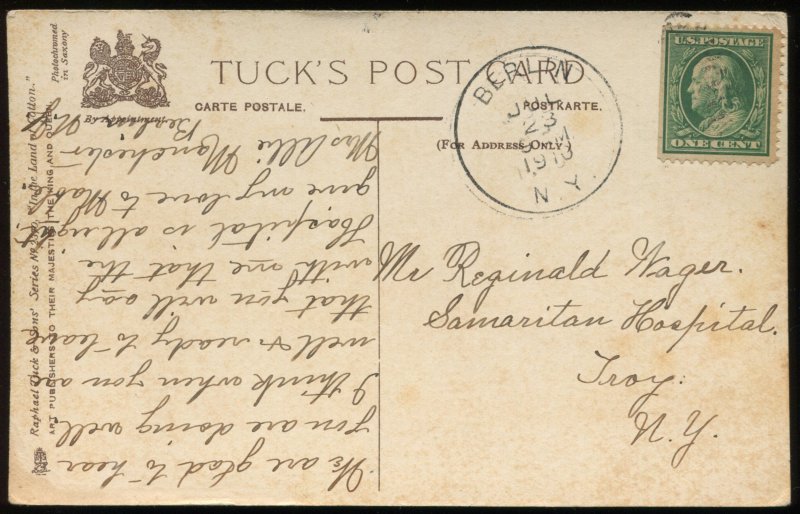 TUCK'S POST CARD
CARTE POSTALE. POSTKARTE.
(FOR ADDRESS ONLY.)
By Appointment.
Photochromed
in Saxony
Raphael Tuck & Sons' Series No. "In the Land of Cotton."
ART PUBLISHERS TO THEIR MAJESTIES THE KING AND QUEEN.
BERLIN
JUL
23
M
1910
N.Y.
U.S. POSTAGE
ONE CENT
Mr Reginald Wager.
Samaritan Hospital.
Troy.
N.Y.
We are glad to hear
you are doing well
I think when you are
well & ready to leave
that you will say
with me that the
Hospital is allright
give my love to
Mrs Allie Manchester
Berlin N.Y.